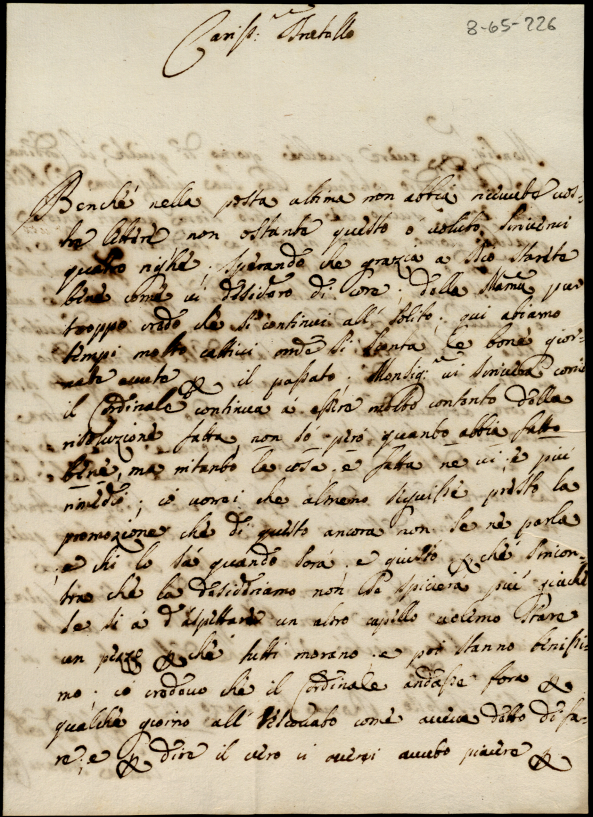 8-65-226
Cariss.mo Fratello
Benché nella posta ultima non abbia ricevuto vos-
tre lettere non ostante questo ò voluto scrivervi
quatro righe, sperando che grazia a Dio starete
bene come vi desidero di core; della Mamà pur
troppo credo che si continui all' solito; qui abiamo
tempi molto cattivi onde si sconta le bone gior-
nate avute il passato. Monsig.re vi scriverà come
il Cordinale continua á essere molto contento della
risoluzione fatta, non só peró quanto abbia fatto
bene, ma intanto la cosa é fatta ne vi é piú
rimedio; io vorrei che almeno seguisse presto la
promozione che di questo ancora non se ne parla
e chi lo sá quando sará e questo ché s'incon-
tra che la desideriamo non piú giaché
se si á d'aspettare un altro capello volemo stare
un pezzo ché tutti morano e poi stanno benissi-
mo. io credevo che il Cordinale andasse fora
qualche giorno all' Vescovato come aveva detto di fa-
re; e dire il vero ci averei avuto piacere